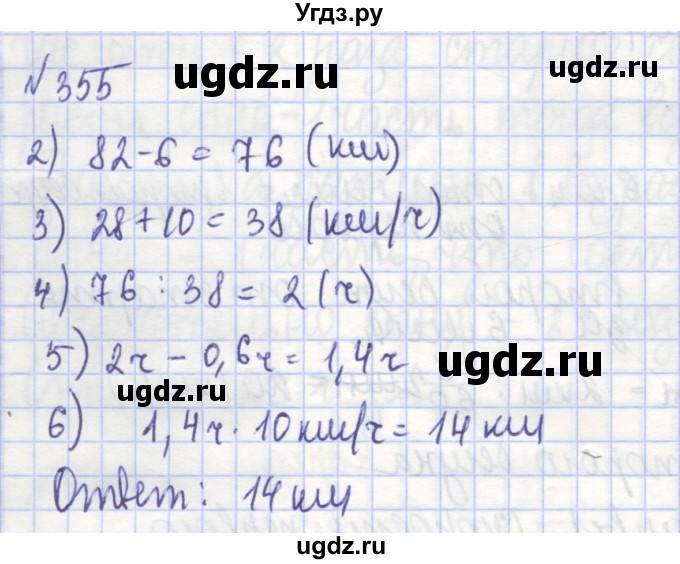 Угдз.ру
№355 ugdz.ru ugdz.ru
2) 82-6 = 76 (км)
3) 28+10 = 38 (км/ч)
4) 76 : 38 = 2 (ч)
5) 2ч - 0,6ч = 1,4ч ugdz.ru
ugdz.ru
6) 1,4ч · 10км/ч = 14 км
Ответ: 14 км
ugdz.ru